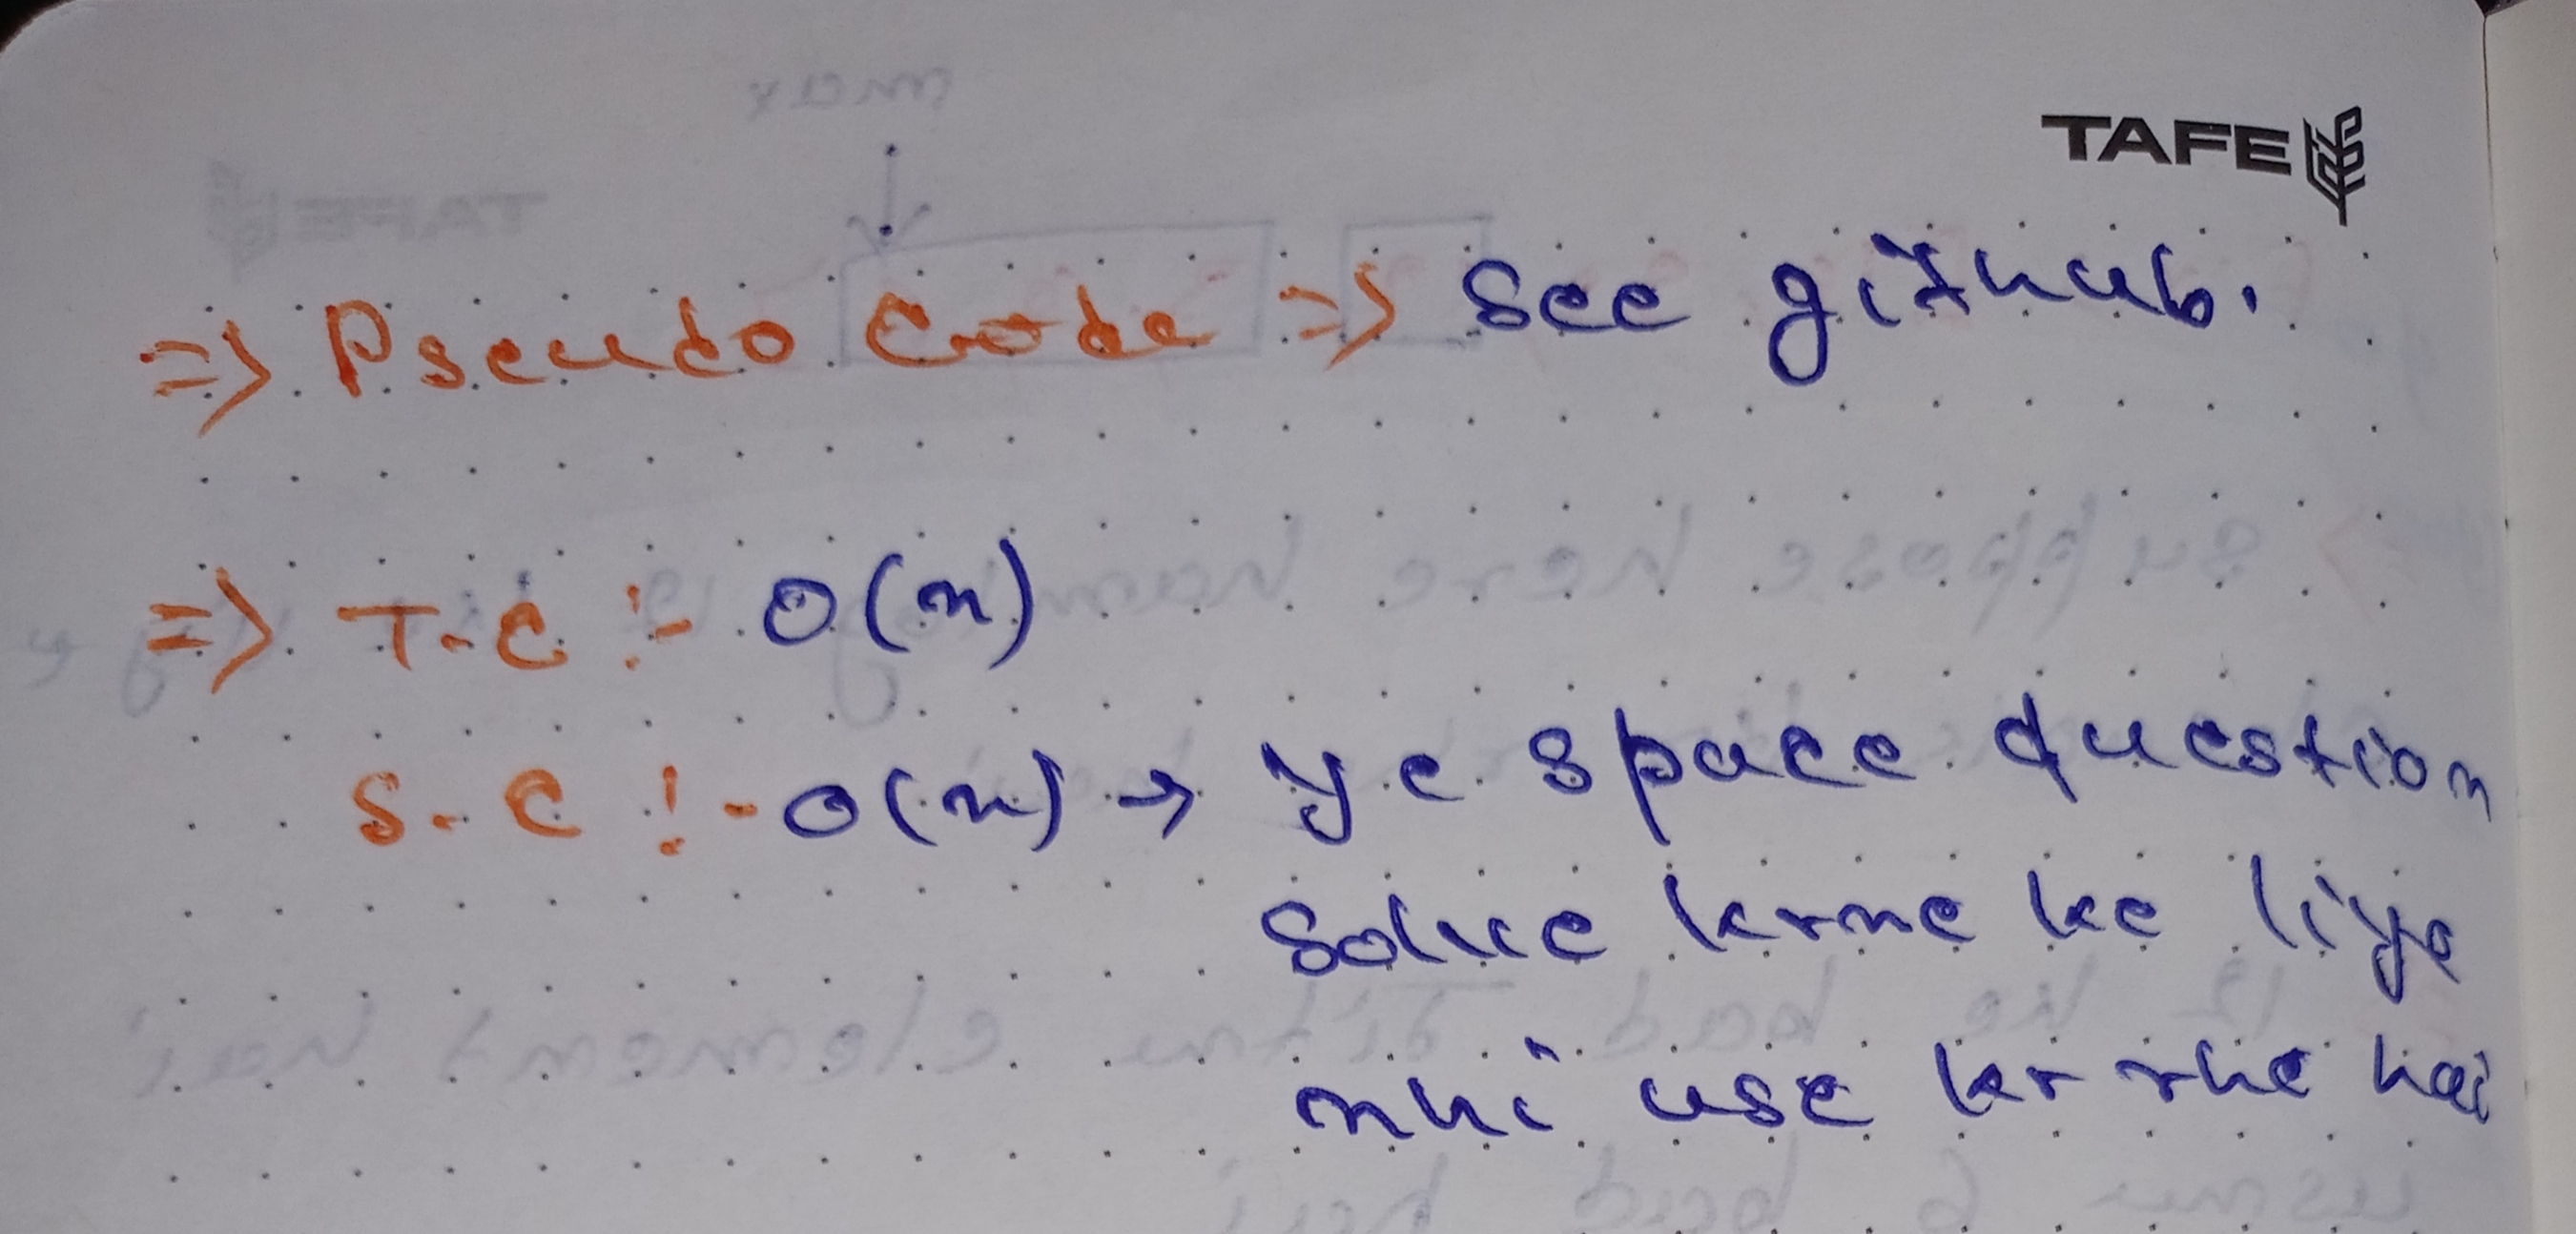 TAFE
=> Pseudo Code => See github.
=> T.C :- O(n)
S.C :- O(n) → ye space question
solve krne ke liye
nhi use kr rhe hai